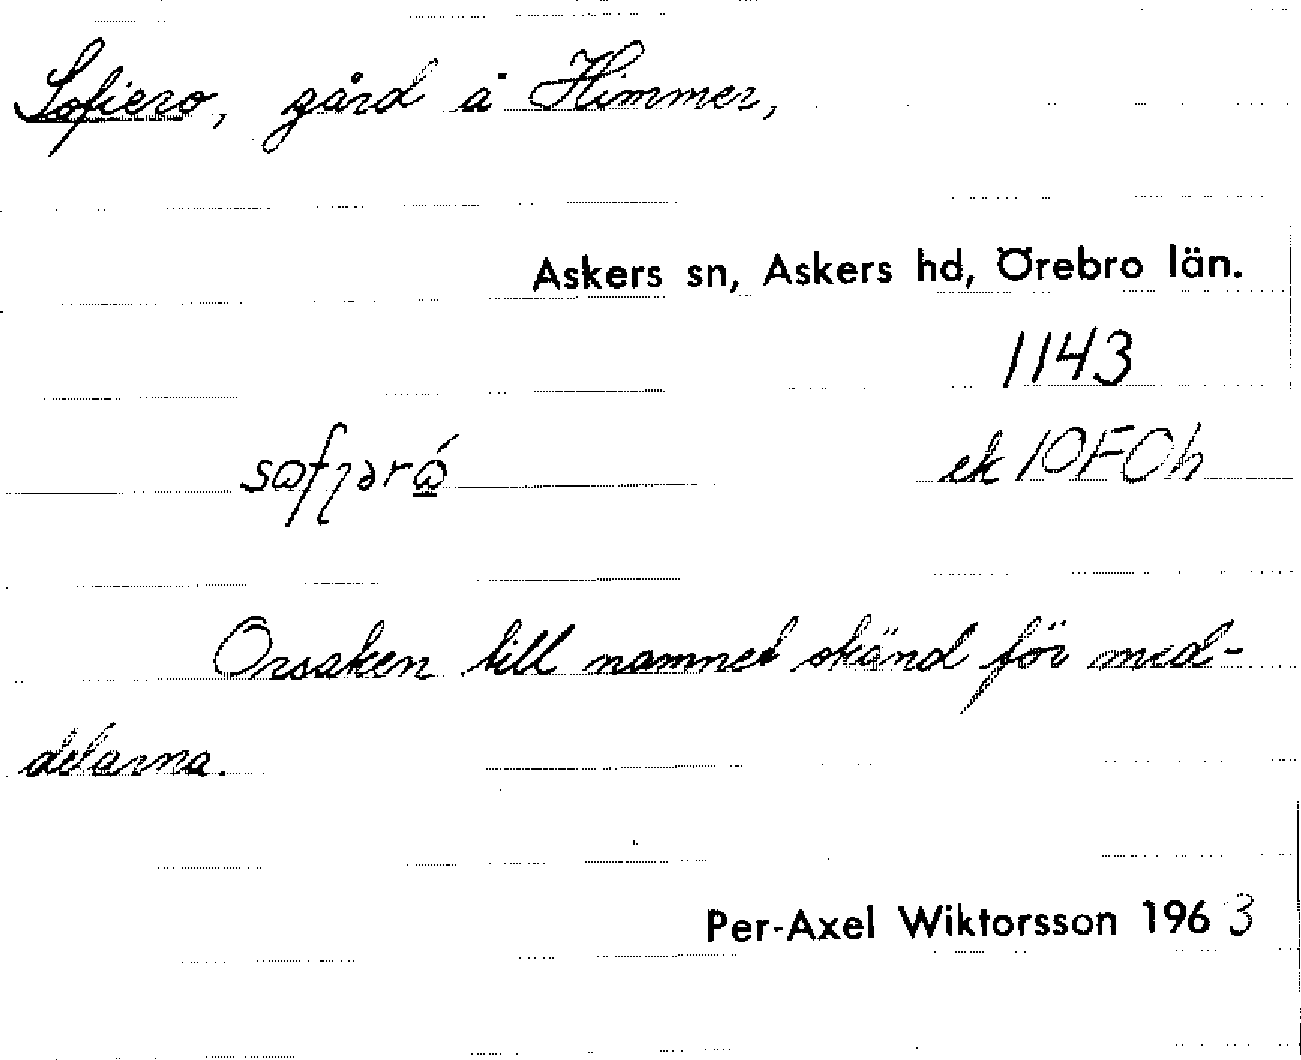 Sofiero, gård å Himmer,
Askers sn, Askers hd, Örebro län.
1143
ek 10E0h
Orsaken till namnet okänd för med-
delarna.
Per-Axel Wiktorsson 1963